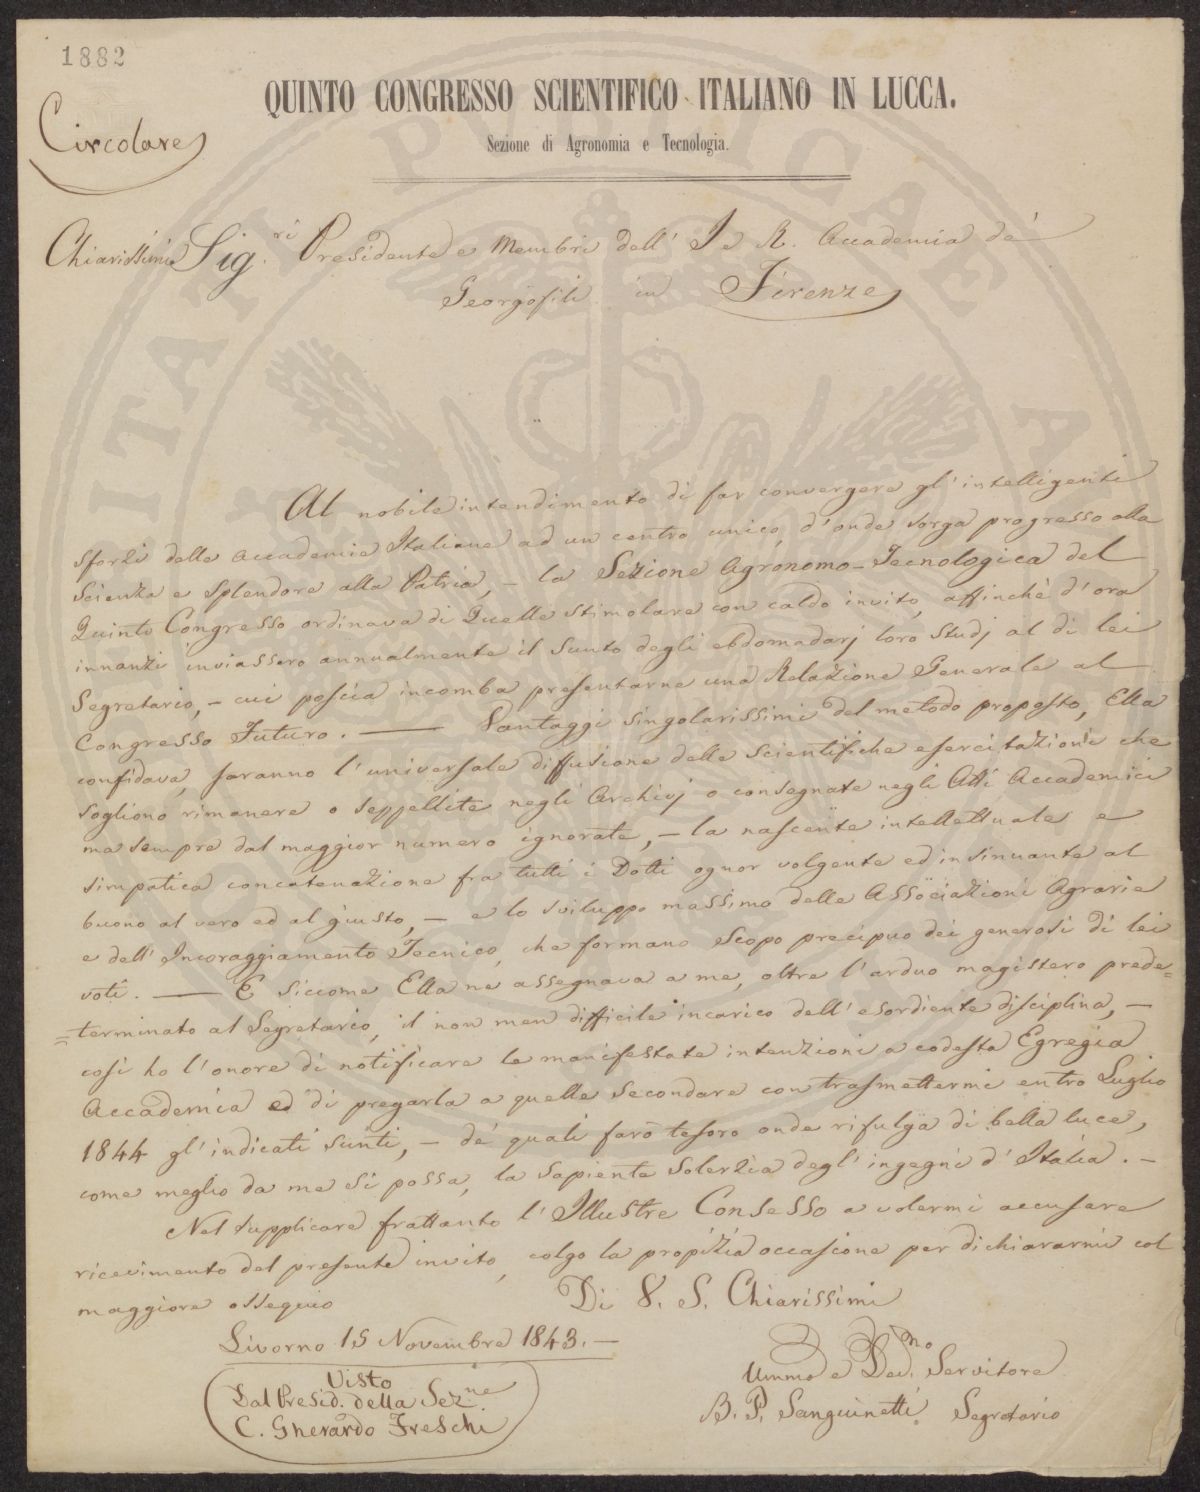 1882
QUINTO CONGRESSO SCIENTIFICO ITALIANO IN LUCCA.
Circolare
Sezione di Agronomia e Tecnologia.
Chiarissimi Sig.ri Presidente e Membri dell' I e R. Accademia de'
Georgofili in Firenze
Al nobile intendimento di far convergere gl' intelligenti
sforzi delle Accademie Italiane ad un centro unico, d'onde sorga progresso alla
Scienza e splendore alla Patria, – la Sezione Agronomo-Tecnologica del
Quinto Congresso ordinava di Quelle stimolare con caldo invito, affinchè d'ora
innanzi inviassero annualmente il Sunto degli ebdomadarj loro Studj al di lei
Segretario, – cui poscia incomba presentarne una Relazione Generale al
Congresso Futuro. — Vantaggi singolarissimi del metodo proposto, Ella
confidava, saranno l'universale diffusione delle scientifiche esercitazioni che
sogliono rimanere o seppellite negli Archivj o consegnate negli Atti Accademici
ma sempre dal maggior numero ignorate, – la nascente intellettuale e
simpatica concatenazione fra tutti i Dotti ognor volgente ed insinuante al
buono al vero ed al giusto, – e lo sviluppo massimo delle Associazioni Agrarie
e dell' Incoraggiamento Tecnico, che formano Scopo precipuo dei generosi di lei
voti. — E siccome Ella ne assegnava a me, oltre l'arduo magistero prede=
=terminato al Segretario, il non men difficile incarico dell' esordiente disciplina, –
così ho l'onore di notificare le manifestate intenzioni a codesta Egregia
Accademia ed di pregarla a quelle secondare con trasmettermi entro Luglio
1844 gl' indicati sunti, – de' quali farò tesoro onde rifulga di bella luce,
come meglio da me si possa, la sapiente solerzia degl' ingegni d' Italia. –
Nel supplicare frattanto l' Illustre Consesso a volermi accusare
ricevimento del presente invito, colgo la propizia occasione per dichiararmi col
maggiore ossequio
Di V. S. Chiarissimi
Livorno 15 Novembre 1843. –
Ummo e Dev.mo Servitore
B. P. Sanguinetti Segretario
Visto
Dal Presid. della Sez.ne
C. Gherardo Freschi